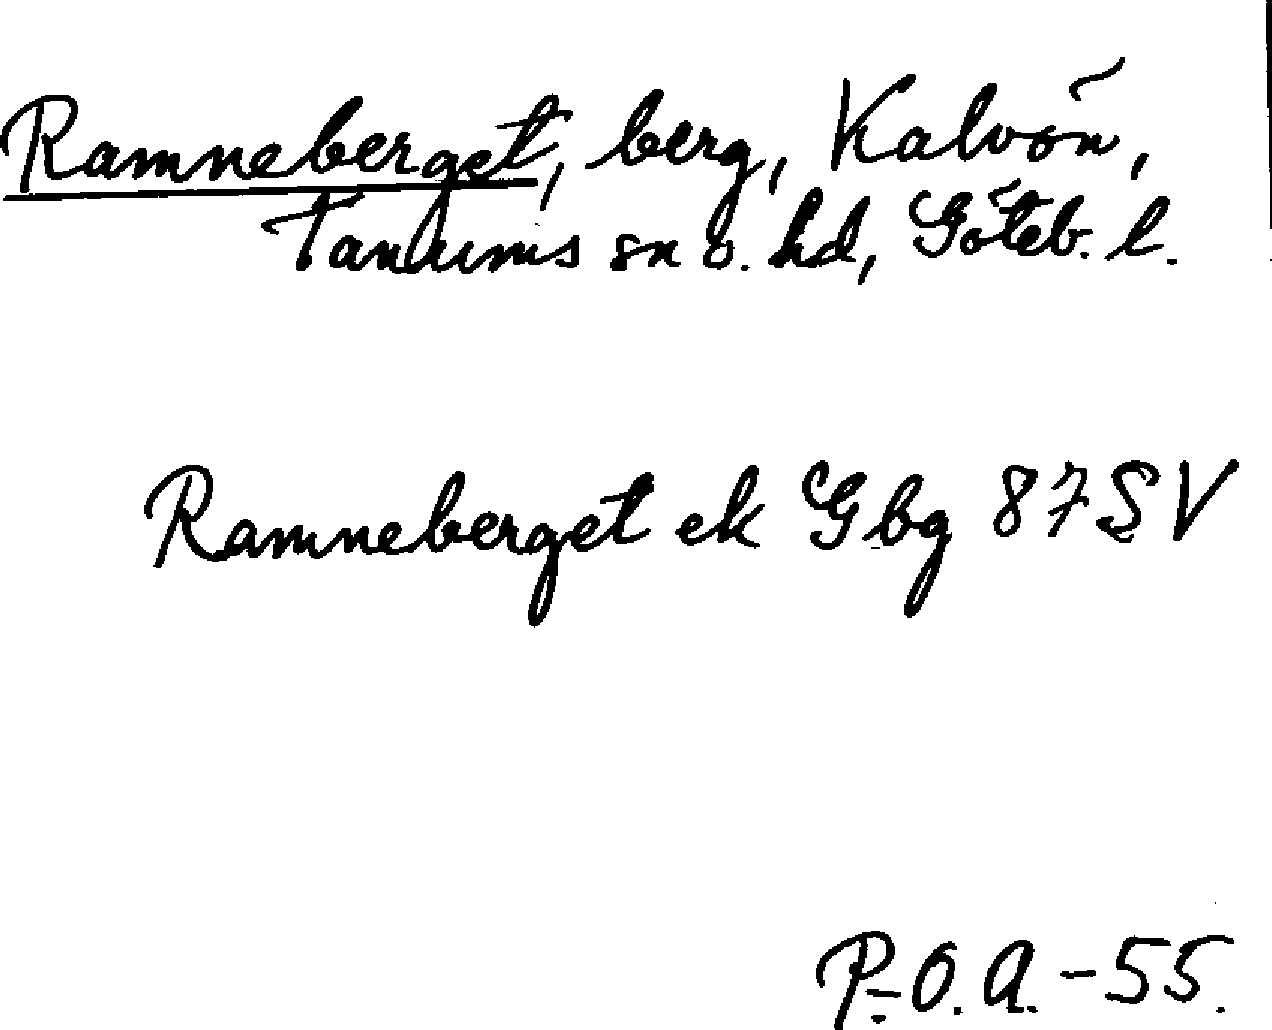 Ramneberget, berg, Kalvön,
Tanums sn o. hd, Göteb. l.
Ramneberget ek Gbg 87 SV
P.-O. A. -55.